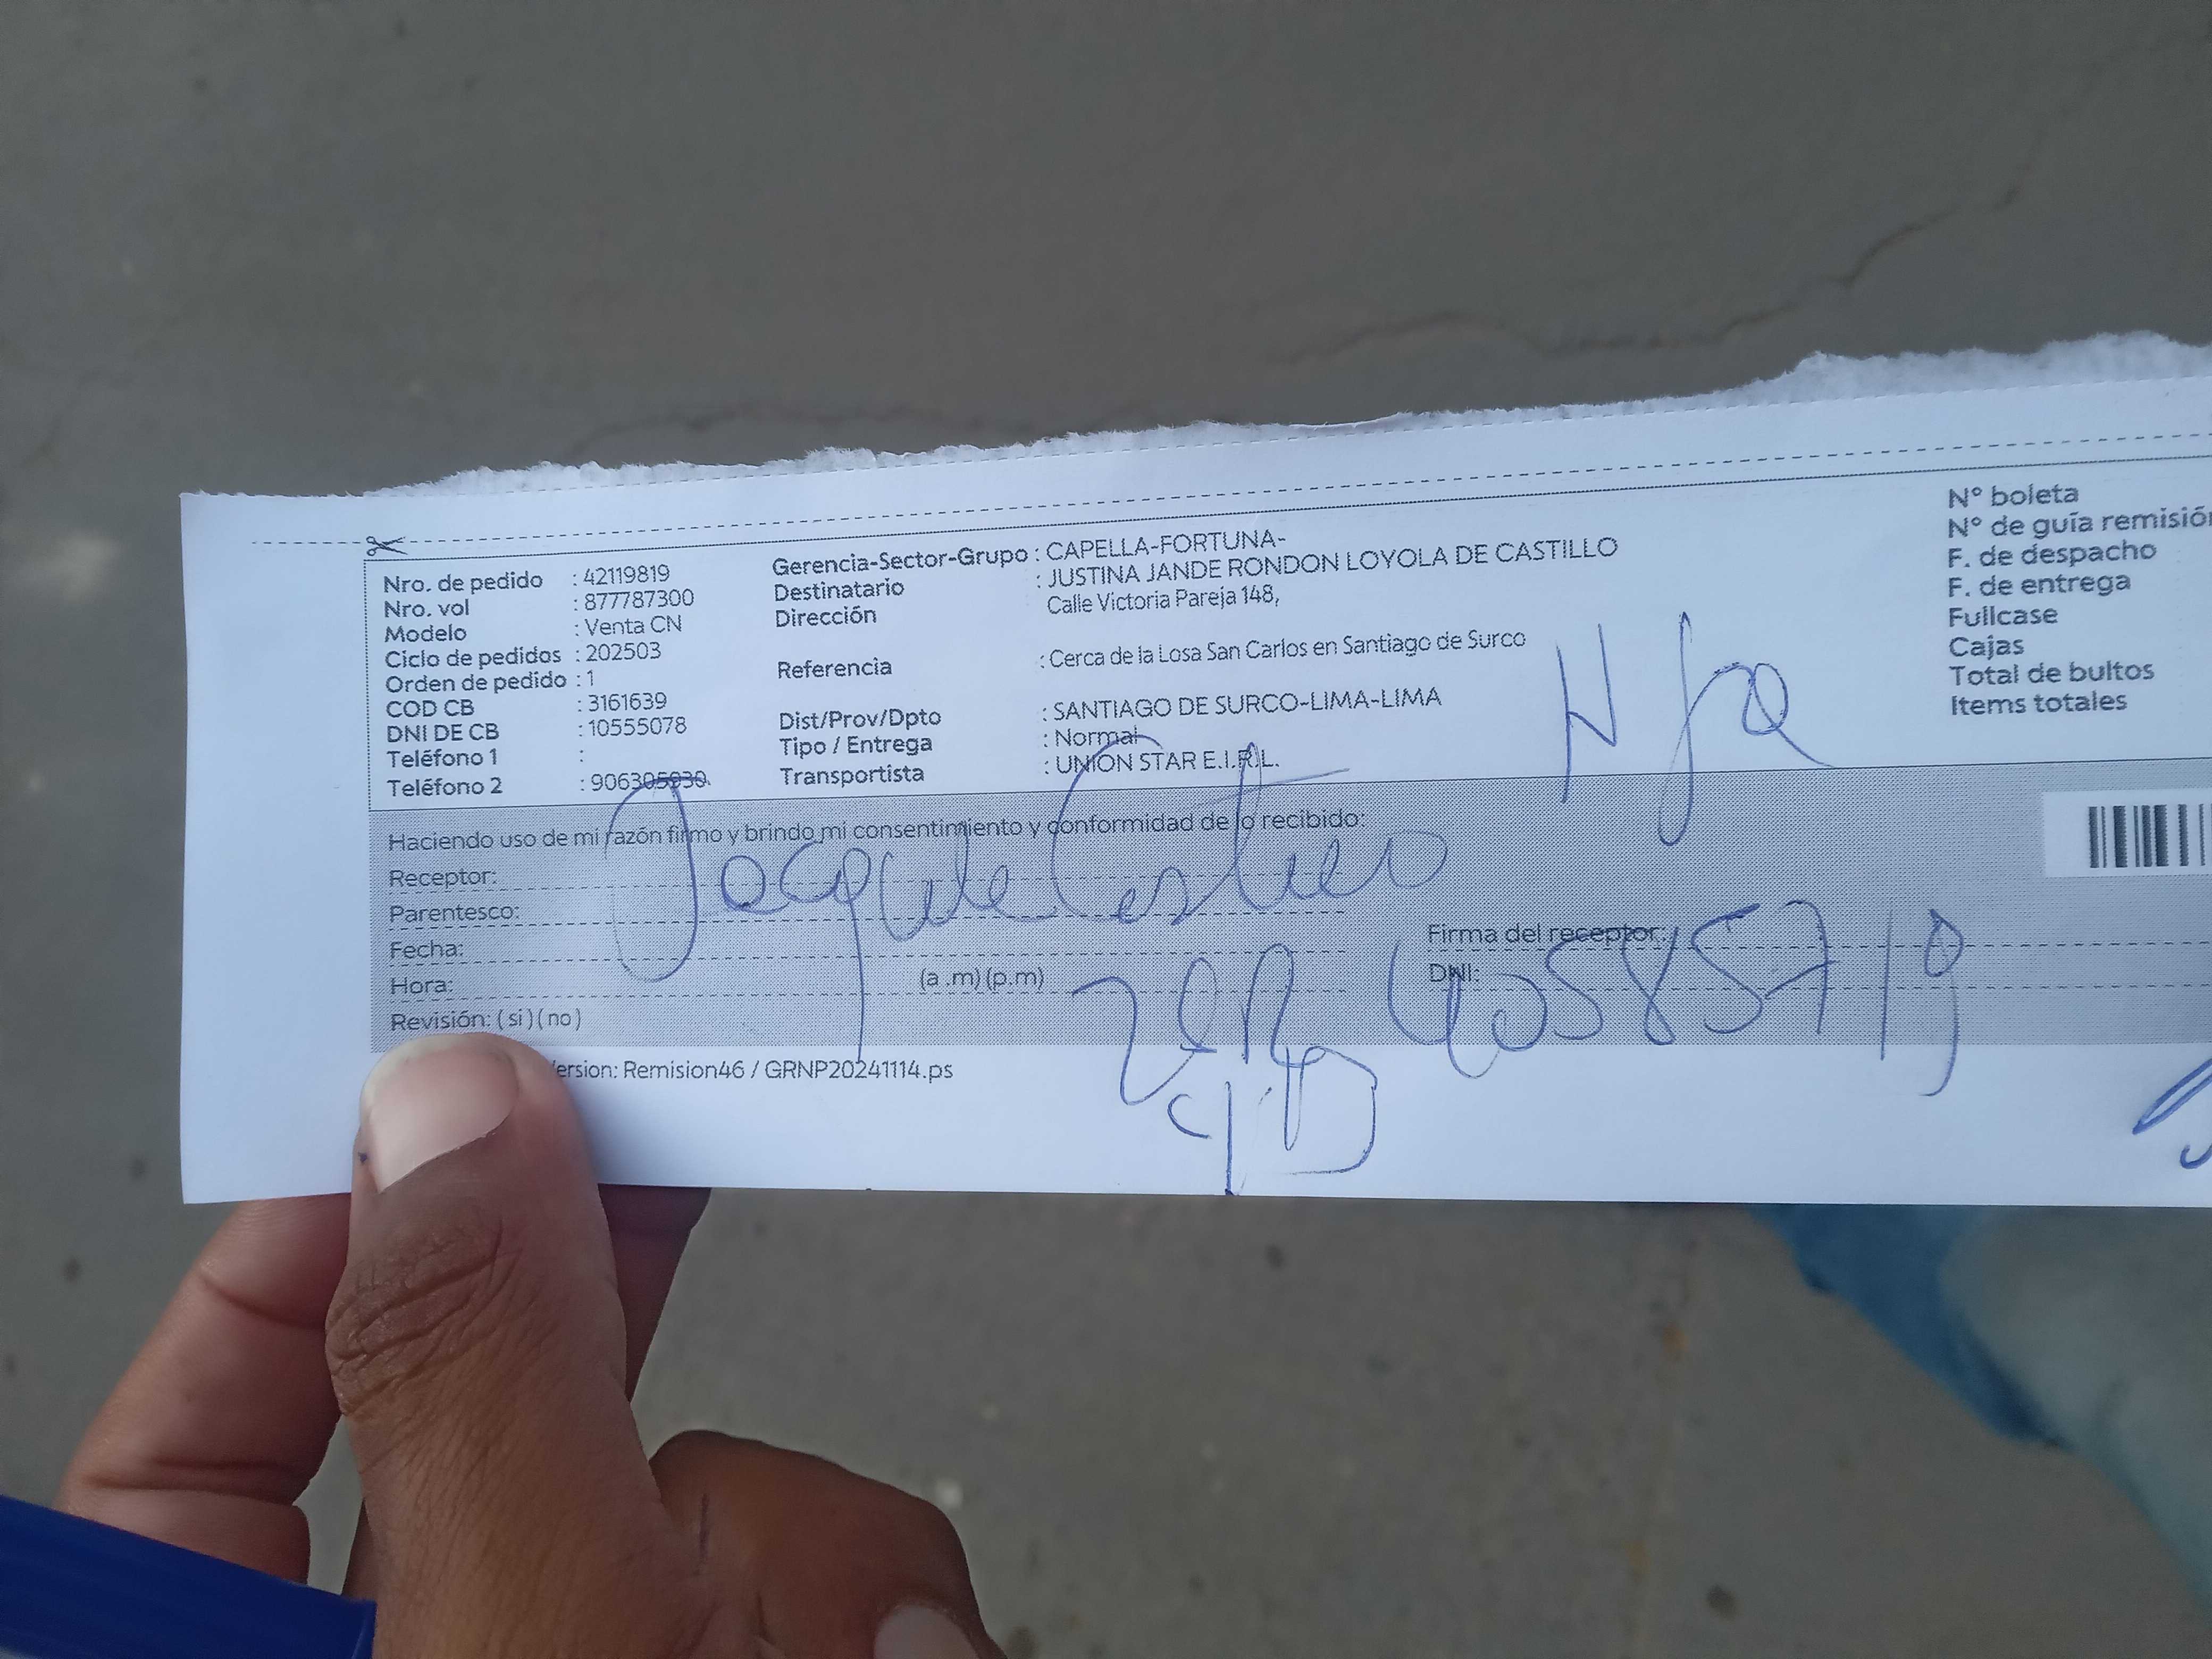 Nro. de pedido : 42119819
Nro. vol : 877787300
Modelo : Venta CN
Ciclo de pedidos : 202503
Orden de pedido : 1
COD CB : 3161639
DNI DE CB : 10555078
Teléfono 1 :
Teléfono 2 : 906305930
Gerencia-Sector-Grupo : CAPELLA-FORTUNA-
Destinatario : JUSTINA JANDE RONDON LOYOLA DE CASTILLO
Dirección Calle Victoria Pareja 148,
Referencia : Cerca de la Losa San Carlos en Santiago de Surco
Dist/Prov/Dpto : SANTIAGO DE SURCO-LIMA-LIMA
Tipo / Entrega : Normal
Transportista : UNION STAR E.I.R.L.
N° boleta
N° de guía remisión
F. de despacho
F. de entrega
Fullcase
Cajas
Total de bultos
Items totales
Haciendo uso de mi razón firmo y brindo mi consentimiento y conformidad de lo recibido:
Receptor:
Parentesco:
Fecha:
Hora: (a .m) (p.m)
Revisión: ( si ) ( no )
Firma del receptor:
DNI: 40585719
ersion: Remision46 / GRNP20241114.ps